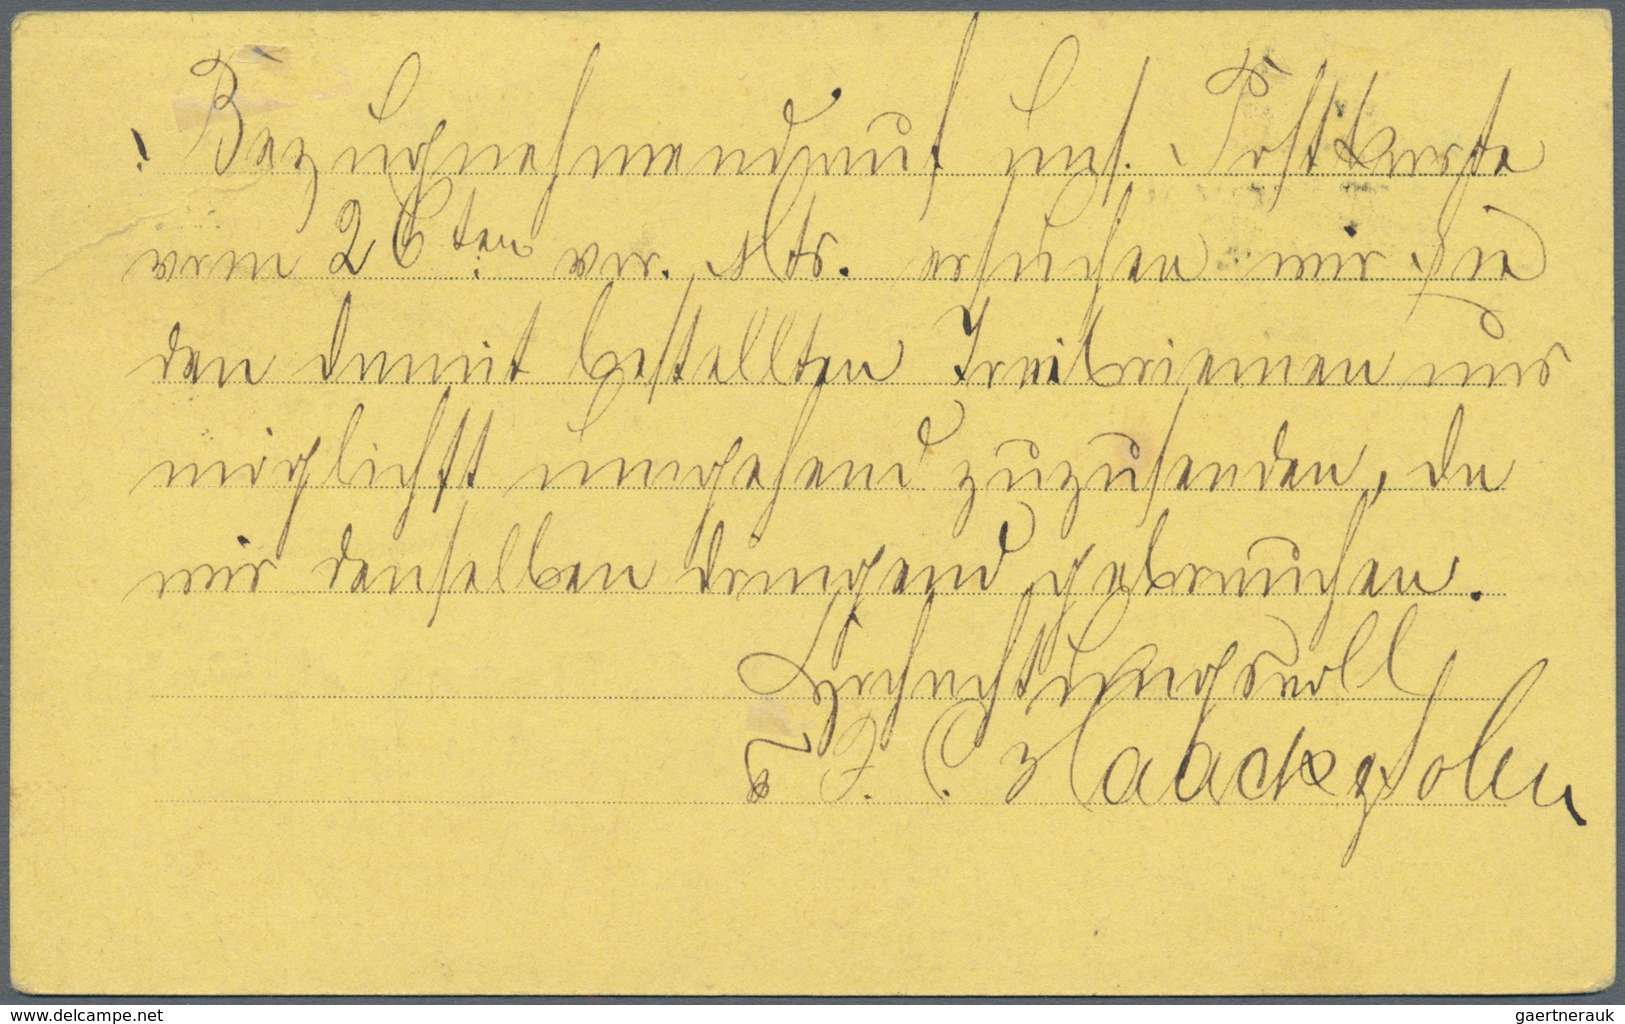 Bezugnehmend auf uns. Postkarte
vom 26ten vor. Mts. ersuchen wir Sie
den damit bestellten Treibriemen uns
möglichst umgehend zuzusenden, da
wir denselben dringend gebrauchen.
Hochachtungsvoll
F. C. Haacke Sohn
www.delcampe.net
gaertnerauk